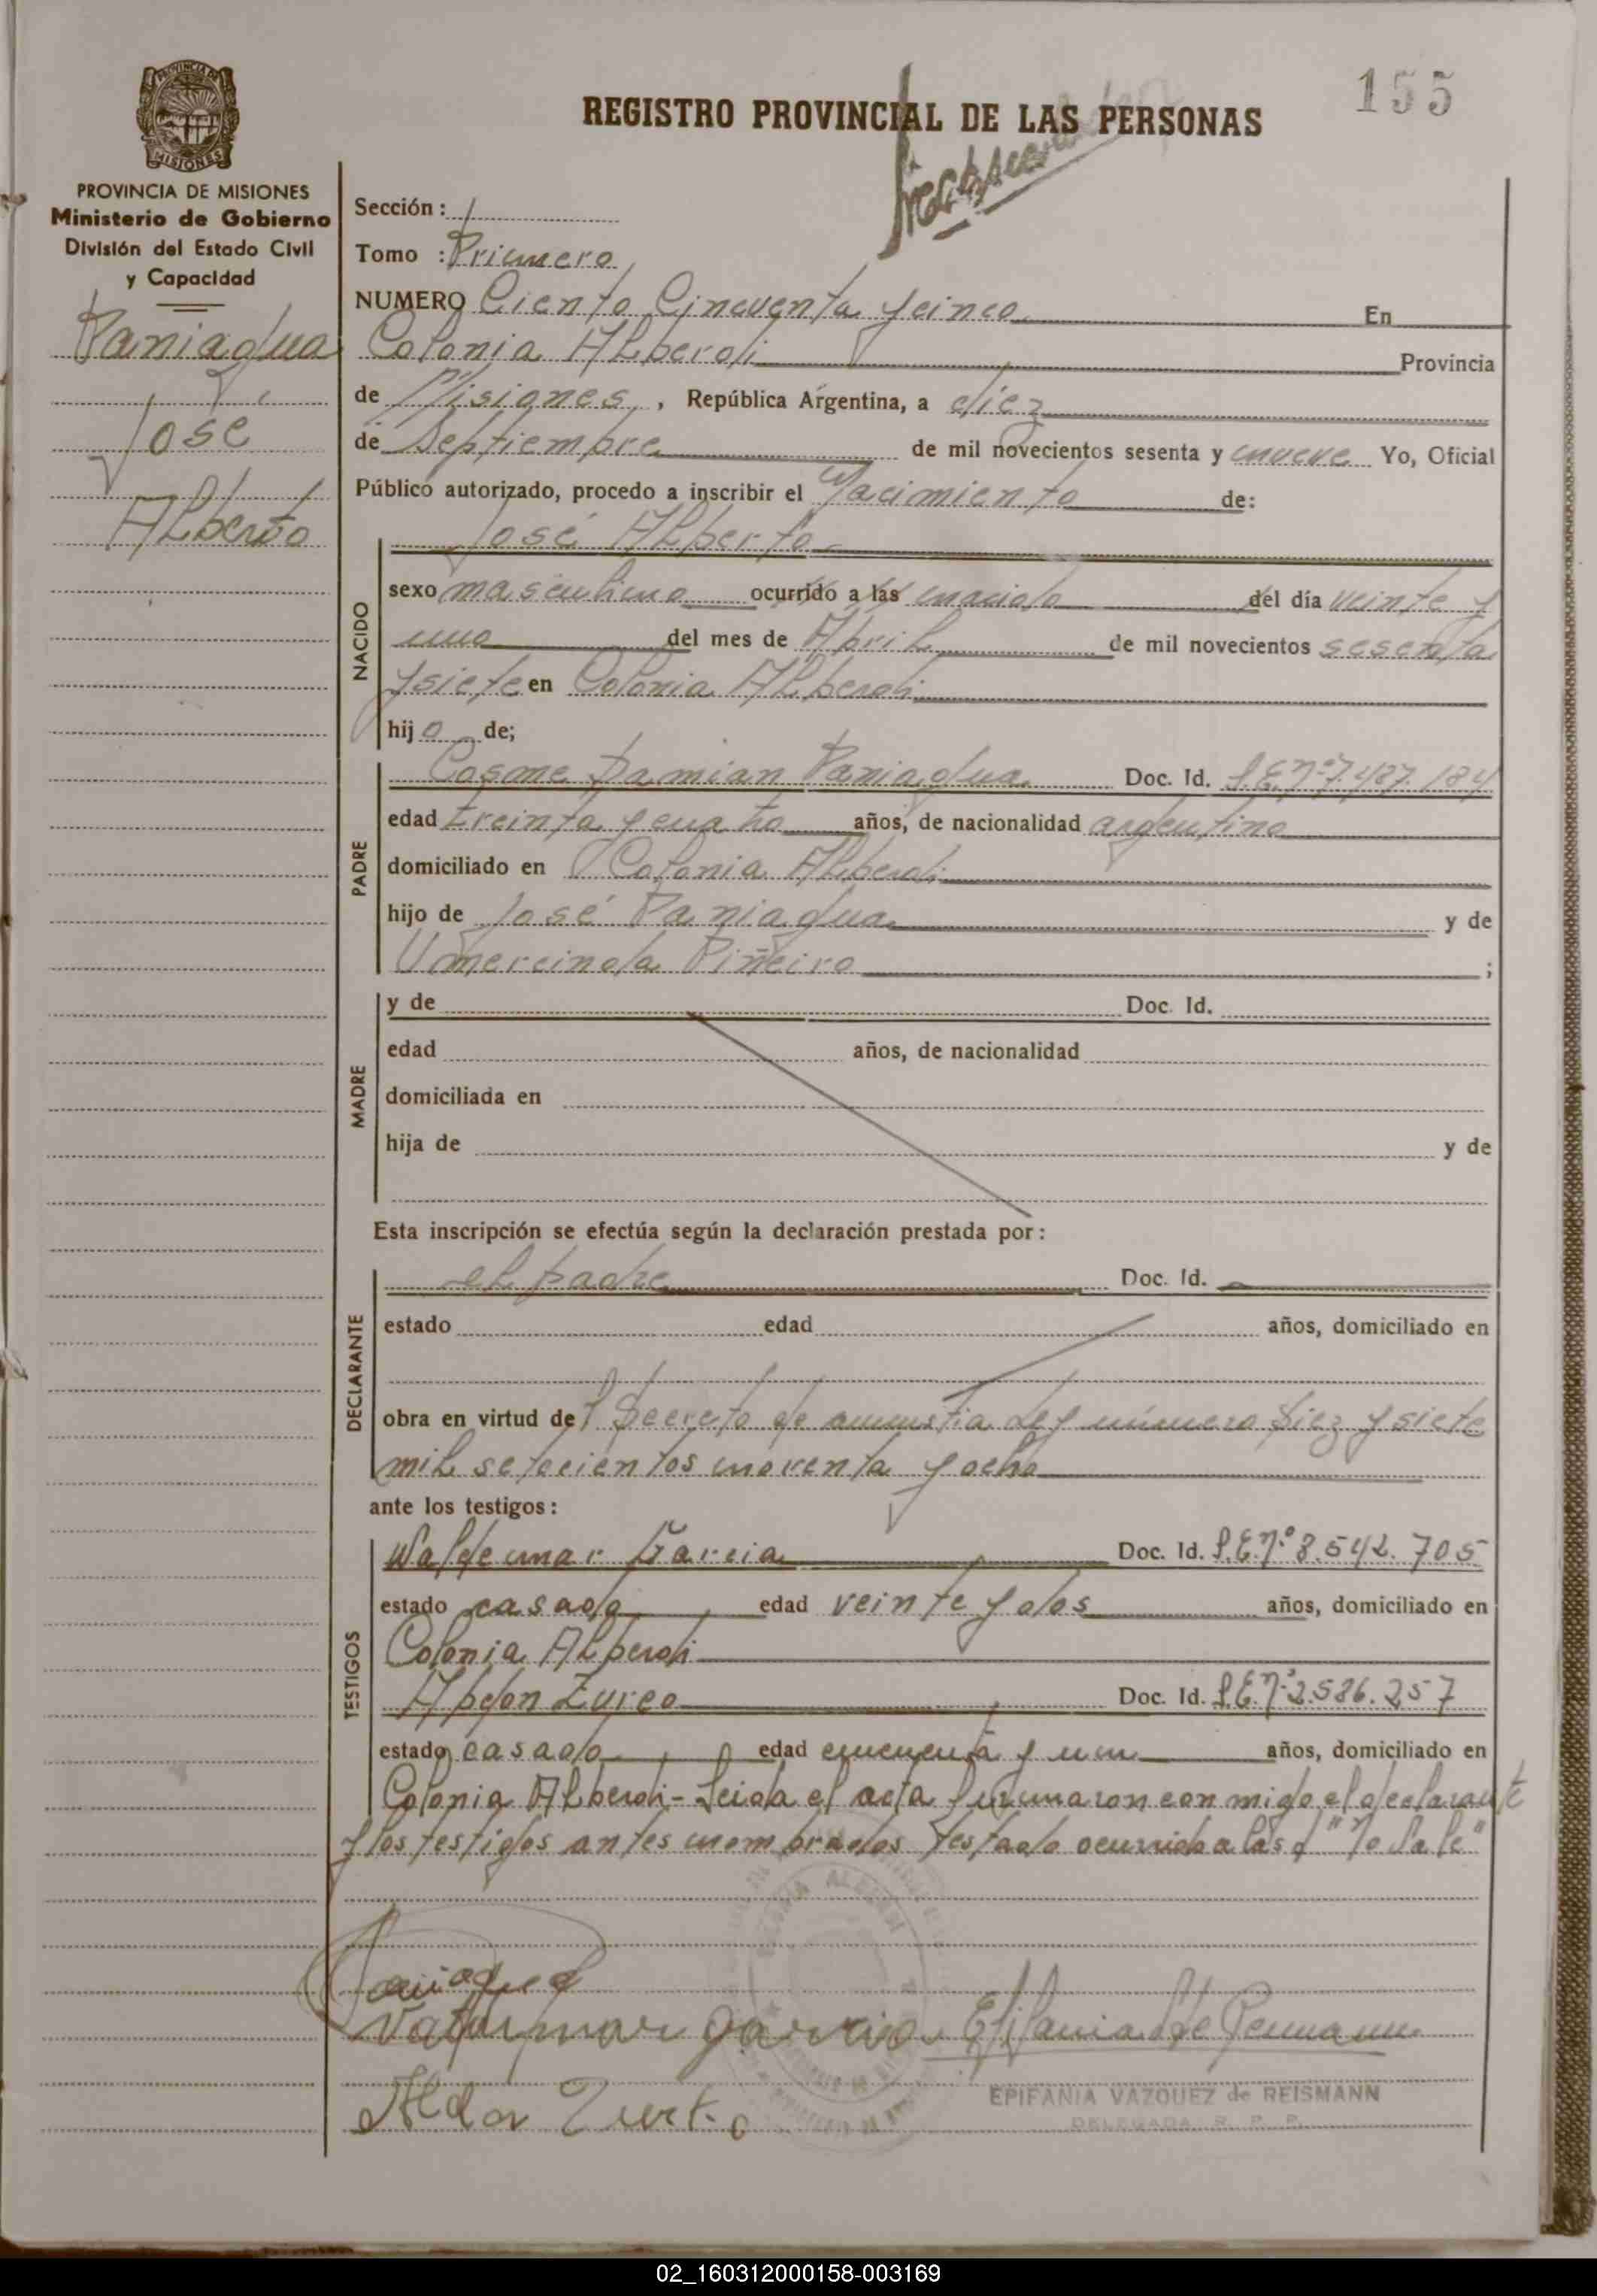 155
REGISTRO PROVINCIAL DE LAS PERSONAS
PROVINCIA DE MISIONES
Ministerio de Gobierno
División del Estado Civil
y Capacidad
Paniagua
José
Alberto
Sección: 1
Tomo : Primero
NUMERO Ciento Cincuenta y cinco En
Colonia Alberdi Provincia
de Misiones, República Argentina, a diez
de Septiembre de mil novecientos sesenta y nueve Yo, Oficial
Público autorizado, procedo a inscribir el Nacimiento de:
NACIDO
José Alberto
sexo masculino ocurrido a las nacido del día veinte y
uno del mes de Abril de mil novecientos sesenta
y siete en Colonia Alberdi
hijo de;
PADRE
Cosme Damian Paniagua Doc. Id. L.E.Nº 7.487.184
edad treinta y cuatro años, de nacionalidad argentino
domiciliado en Colonia Alberdi
hijo de José Paniagua y de
Umercinda Piñeiro ;
MADRE
y de Doc. Id.
edad años, de nacionalidad
domiciliada en
hija de y de
Esta inscripción se efectúa según la declaración prestada por:
DECLARANTE
el padre Doc. Id.
estado edad años, domiciliado en
obra en virtud del Decreto de amnistia Ley número Diez y siete
mil setecientos noventa y ocho
ante los testigos:
TESTIGOS
Waldemar Garcia Doc. Id. L.E.Nº 8.542.705
estado casado edad veinte y dos años, domiciliado en
Colonia Alberdi
Abdon Zurco Doc. Id. L.E.Nº 2.586.257
estado casado edad cincuenta y un años, domiciliado en
Colonia Alberdi - Leida el acta firmaron conmigo el declarante
y los testigos antes nombrados Testado ocurrido a las d "No Vale"
Paniagua
Valdemar Garcia
EPIFANIA VAZQUEZ de REISMANN
DELEGADA R. P. P.
02_160312000158-003169